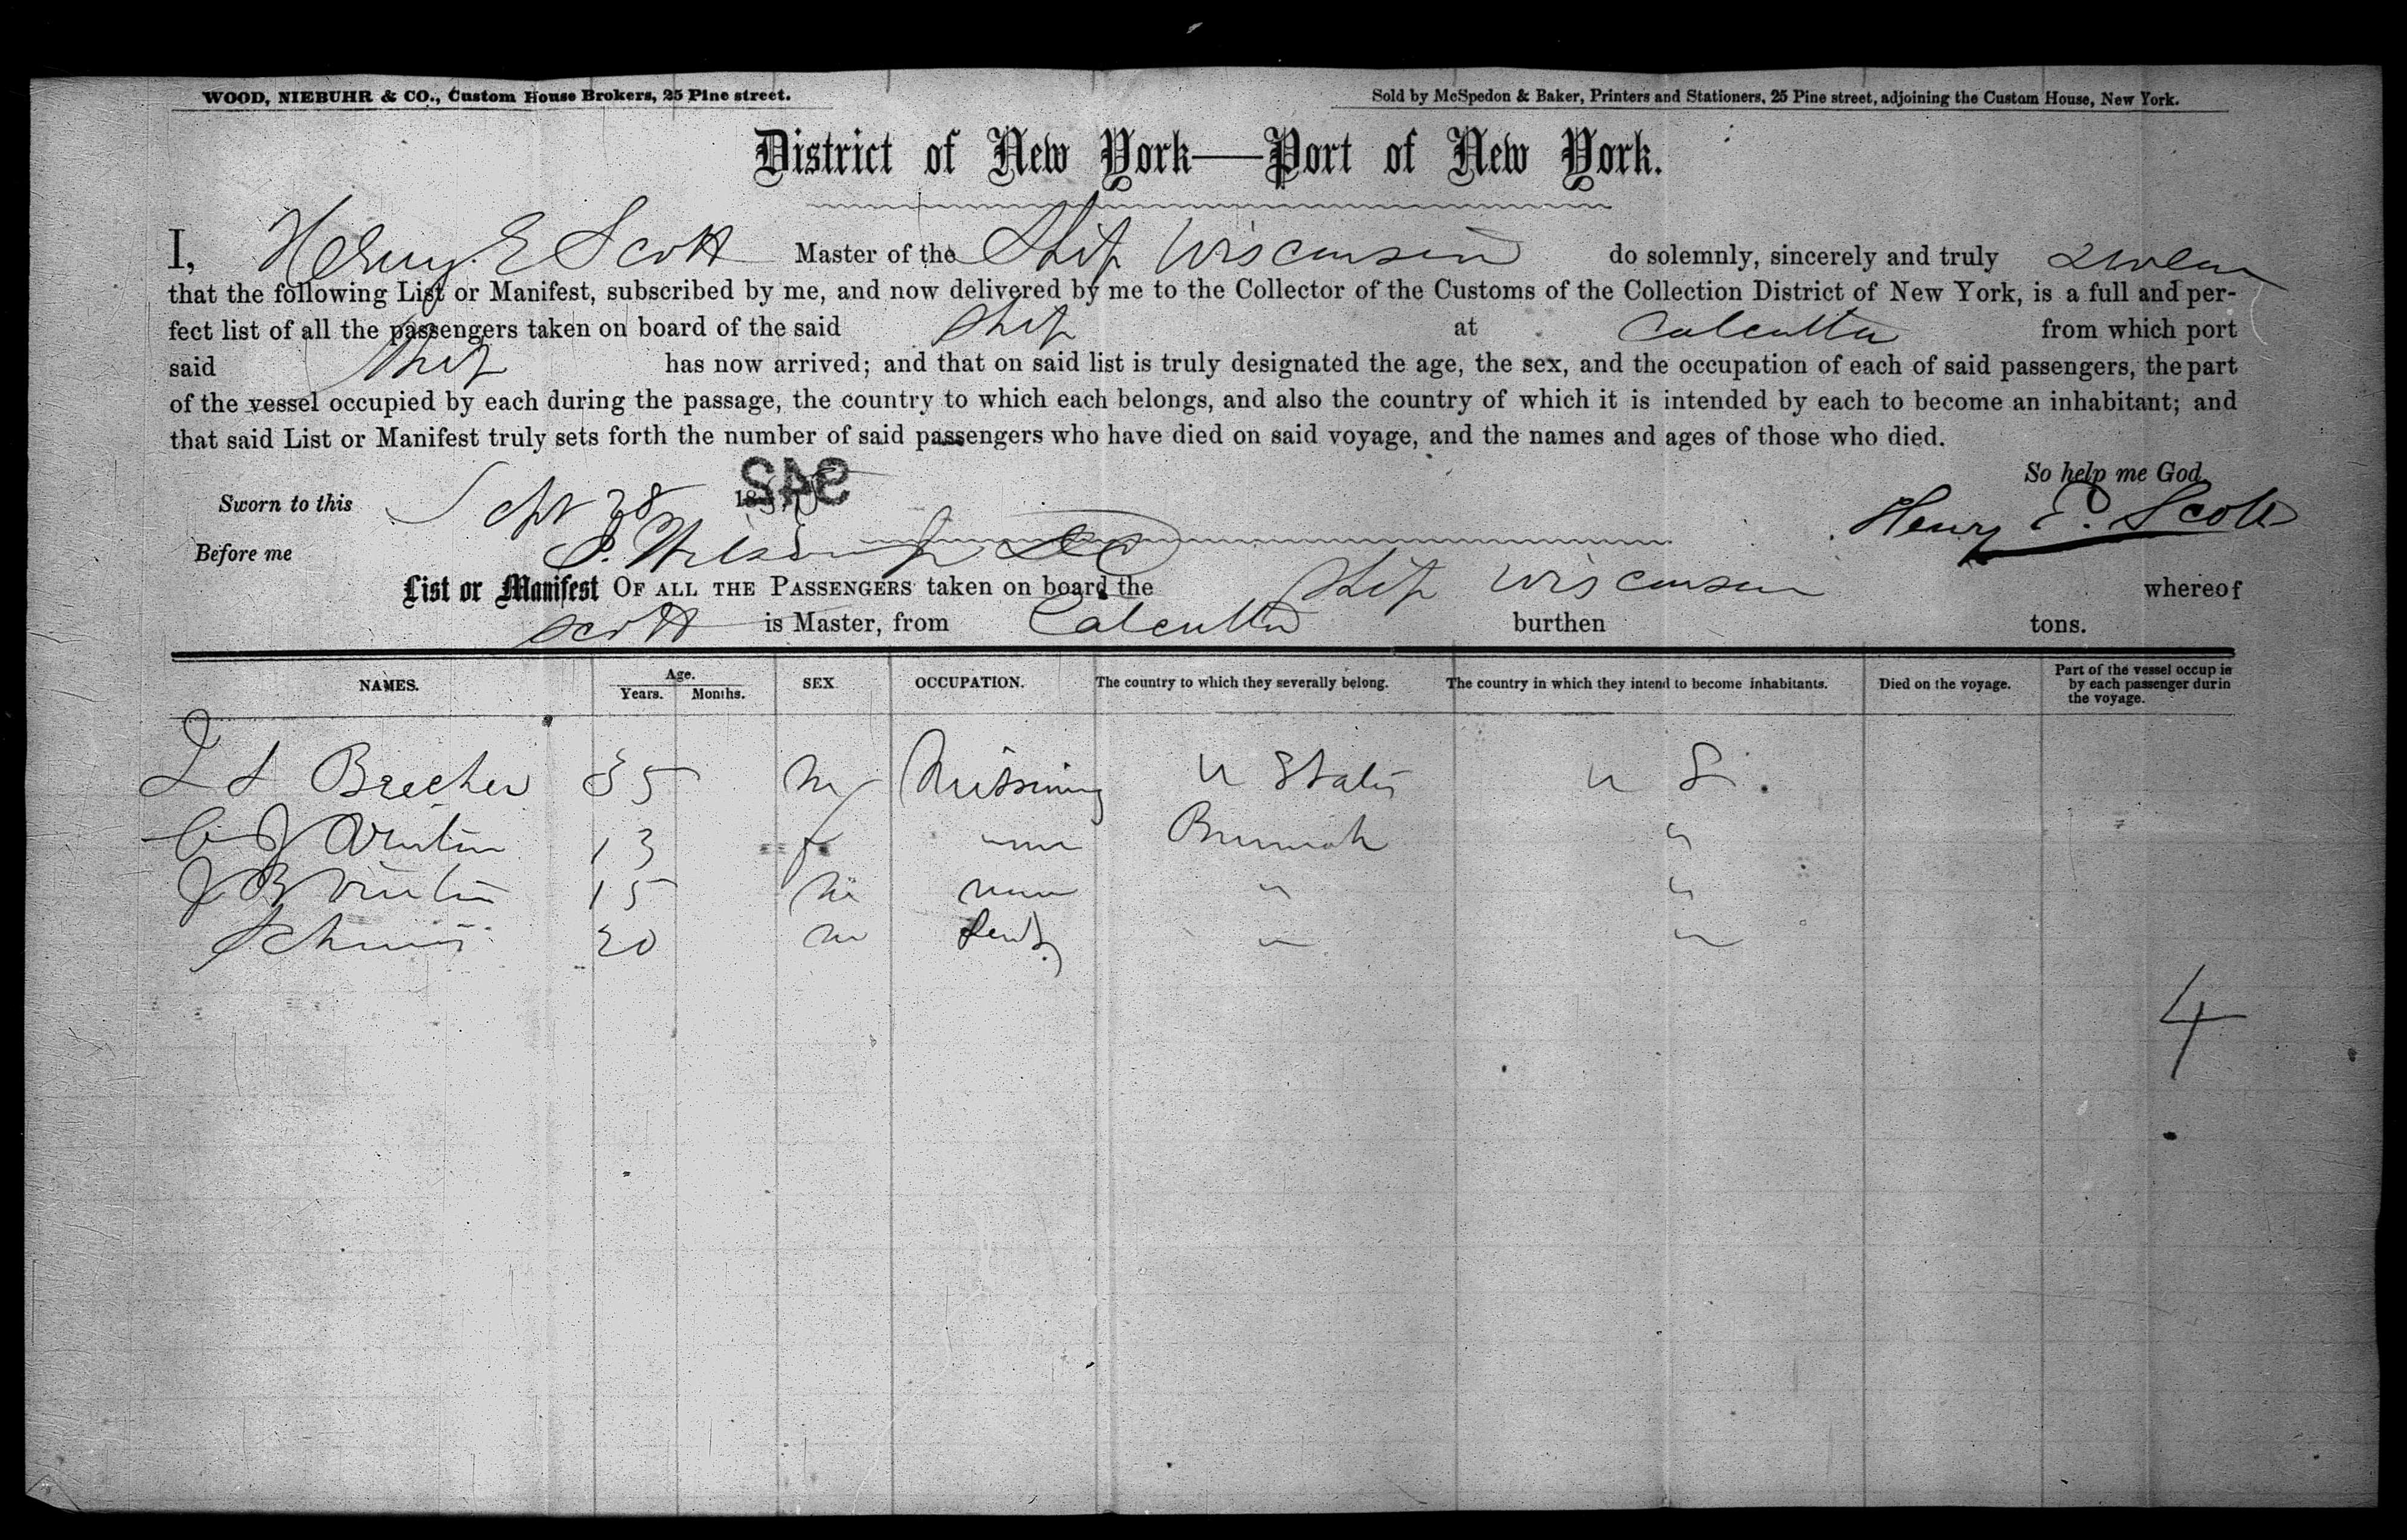 WOOD, NIEBUHR & CO., Custom House Brokers, 25 Pine street.
Sold by McSpedon & Baker, Printers and Stationers, 25 Pine street, adjoining the Custom House, New York.
District of New York—Port of New York.
I, Henry E Scott Master of the Ship Wisconsin do solemnly, sincerely and truly swear
that the following List or Manifest, subscribed by me, and now delivered by me to the Collector of the Customs of the Collection District of New York, is a full and per-
fect list of all the passengers taken on board of the said Ship at Calcutta from which port
said Ship has now arrived; and that on said list is truly designated the age, the sex, and the occupation of each of said passengers, the part
of the vessel occupied by each during the passage, the country to which each belongs, and also the country of which it is intended by each to become an inhabitant; and
that said List or Manifest truly sets forth the number of said passengers who have died on said voyage, and the names and ages of those who died.
So help me God
942
Sworn to this Sept 28 18
Henry E. Scott
Before me
List or Manifest OF ALL THE PASSENGERS taken on board the Ship Wisconsin whereof
Scott is Master, from Calcutta burthen tons.
NAMES. Age. Years. Months. SEX OCCUPATION. The country to which they severally belong. The country in which they intend to become inhabitants. Died on the voyage. Part of the vessel occup ie by each passenger durin the voyage.
Beecher 35 m U States U S.
C J Vinton 13 f none Burmah "
J B Vinton 15 m none " "
m " "
4